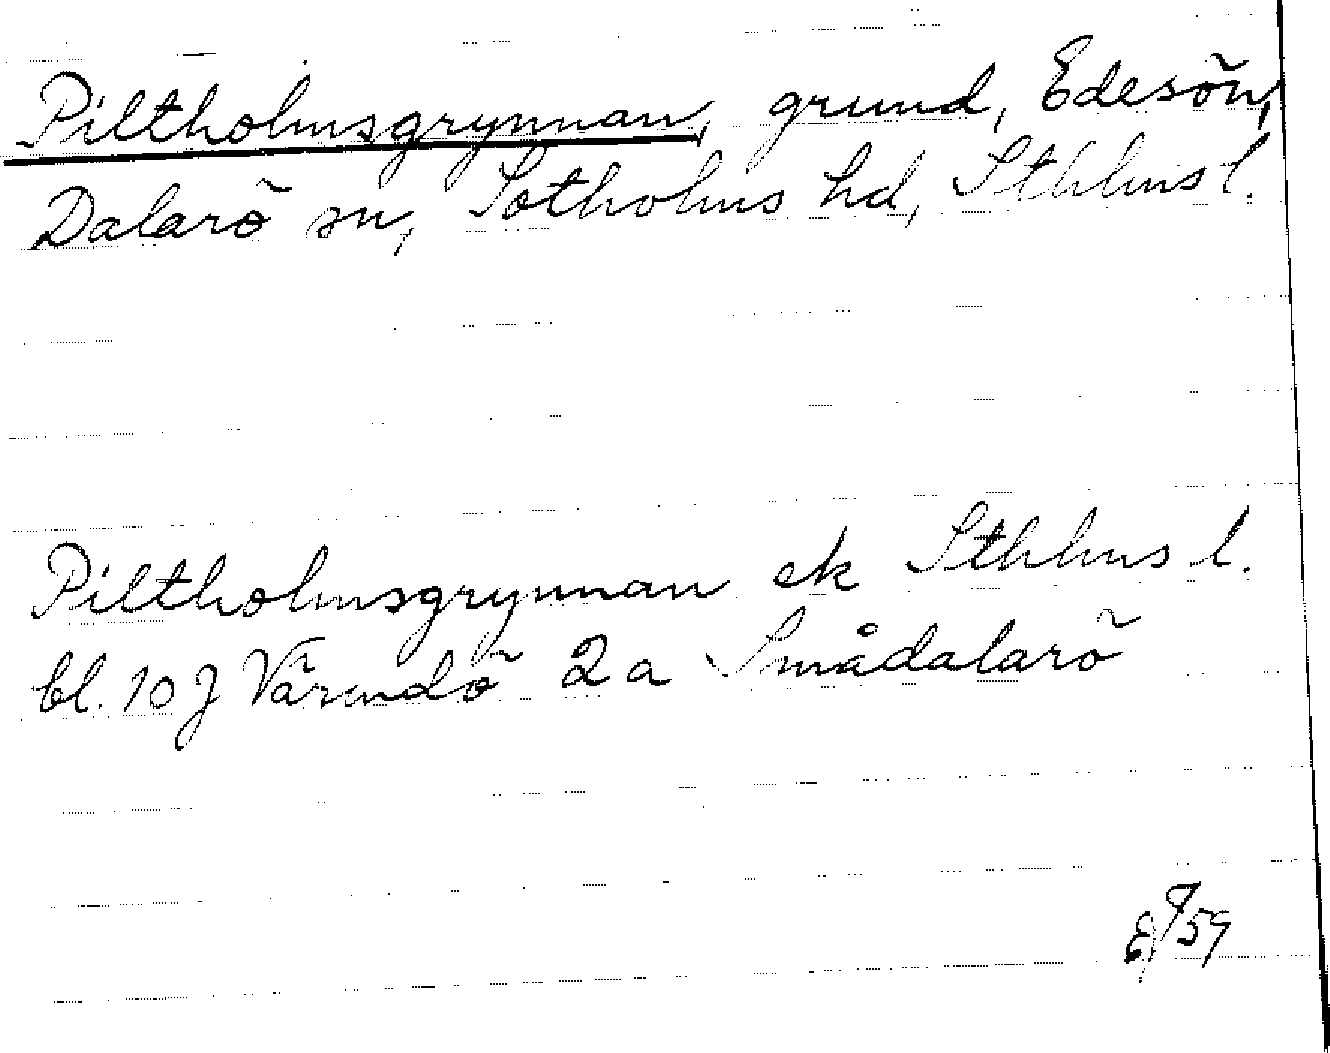 Piltholmsgrynnan, grund, Edesön,
Dalarö sn, Sotholms hd, Sthlms l.
Piltholmsgrynnan ek Sthlms l.
bl. 10 J Värmdö 2a Smådalarö